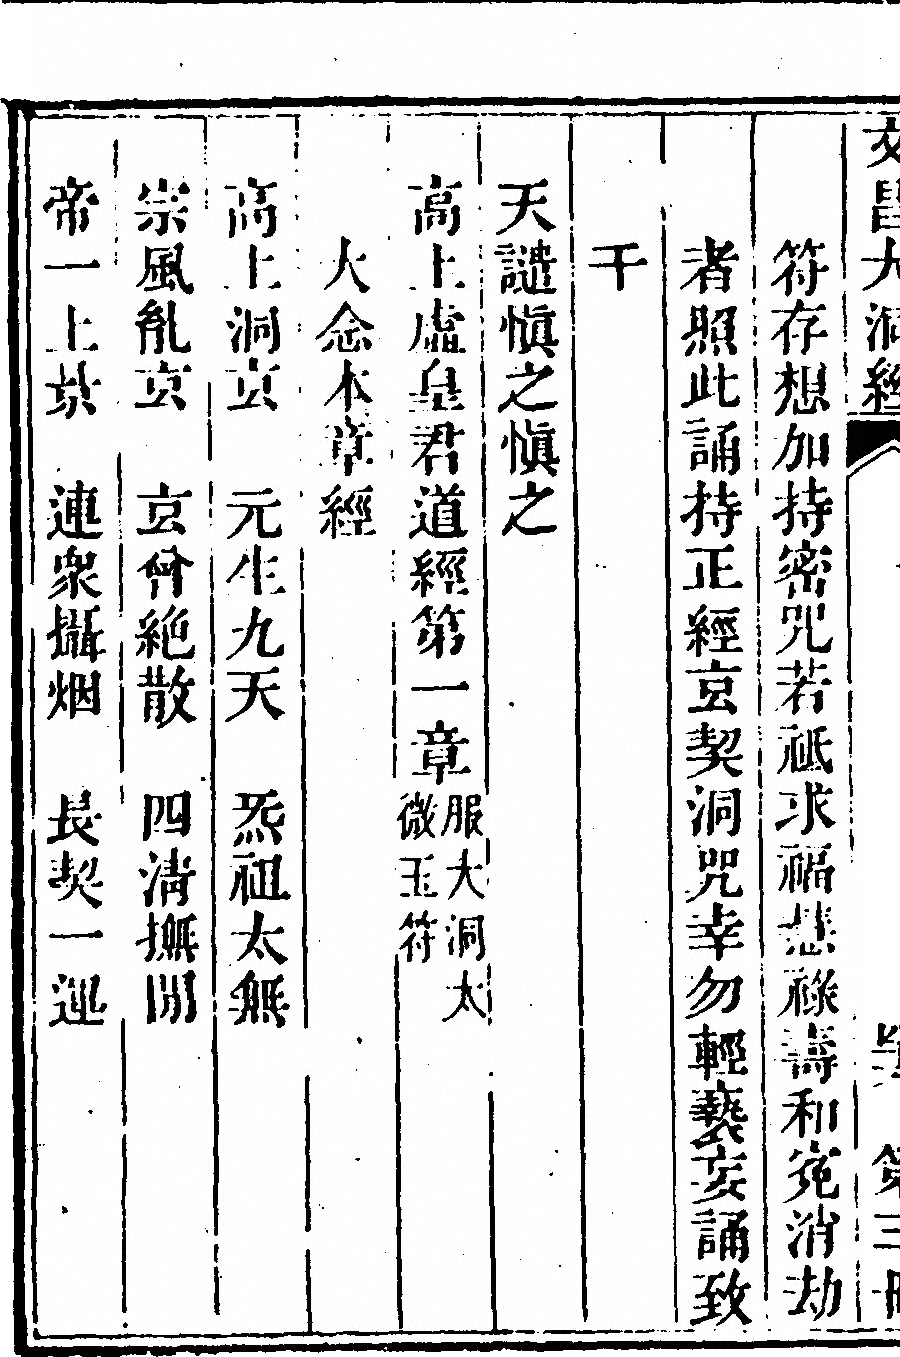 文昌大洞經 第三冊
符存想加持密咒若祗求福慧祿壽和寃消劫
者照此誦持正經玄契洞咒幸勿輕褻妄誦致
干
天譴愼之愼之
高上虛皇君道經第一章 服大洞太
微玉符
大念本章經
高上洞玄 元生九天 炁祖太無
宗風亂玄 玄曾絶散 四清撫閒
帝一上景 連衆攝烟 長契一運